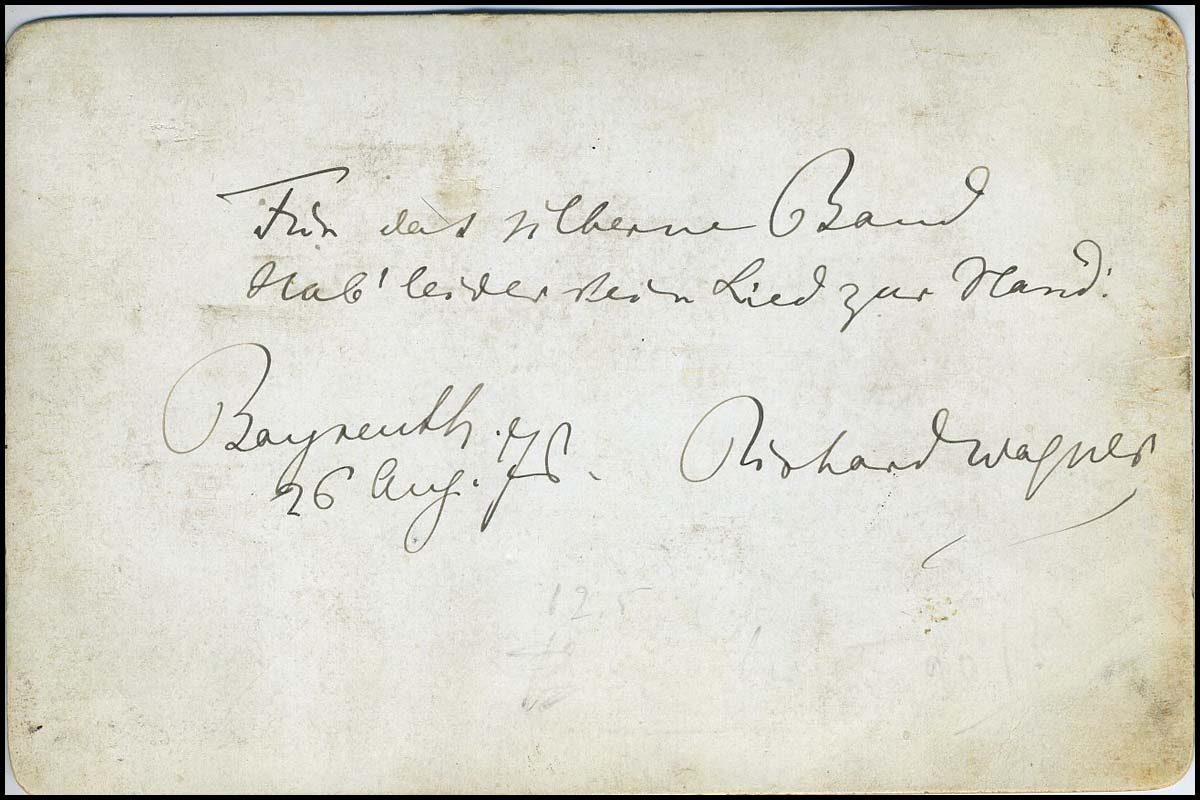 Für das silberne Band
Hab' leider kein Lied zur Hand!
Bayreuth.
26 Aug. 76.
Richard Wagner
12.5